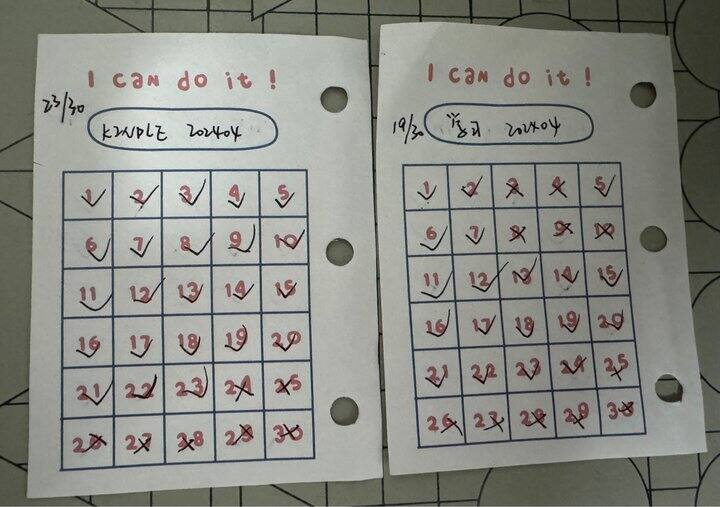 I can do it!
23/30
KINDLE 202404
1 2 3 4 5
6 7 8 9 10
11 12 13 14 15
16 17 18 19 20
21 22 23 24 25
26 27 28 29 30
I can do it!
19/30 学习 202404
1 2 3 4 5
6 7 8 9 10
11 12 13 14 15
16 17 18 19 20
21 22 23 24 25
26 27 28 29 30